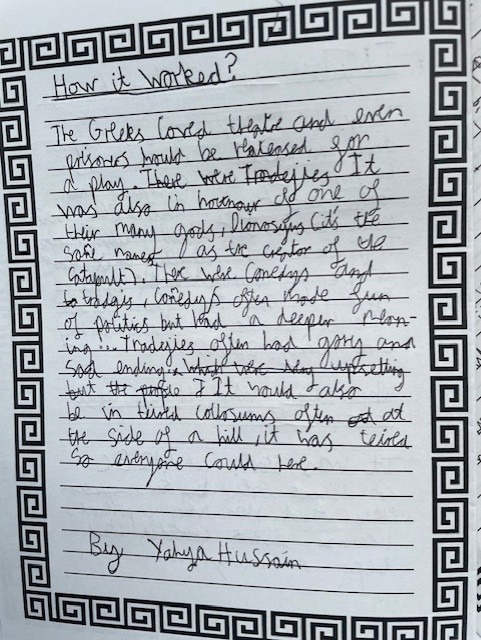 How it worked?
The Greeks loved theatre and even
prisoners would be released for
a play. There were Tradejies It
was also in honour of one of
their many gods, Dionosyus (it's the
same name as the creator of the
Catapult). There were Comedys and
to tradgis, Comedys often made fun
of politics but had a deeper mean-
ing... Tradejies often had gory and
sad ending. which were very upsetting
but the people I It would also
be in teired collosums often at at
the side of a hill, it was teired
so everyone could here.
By Yahya Hussain